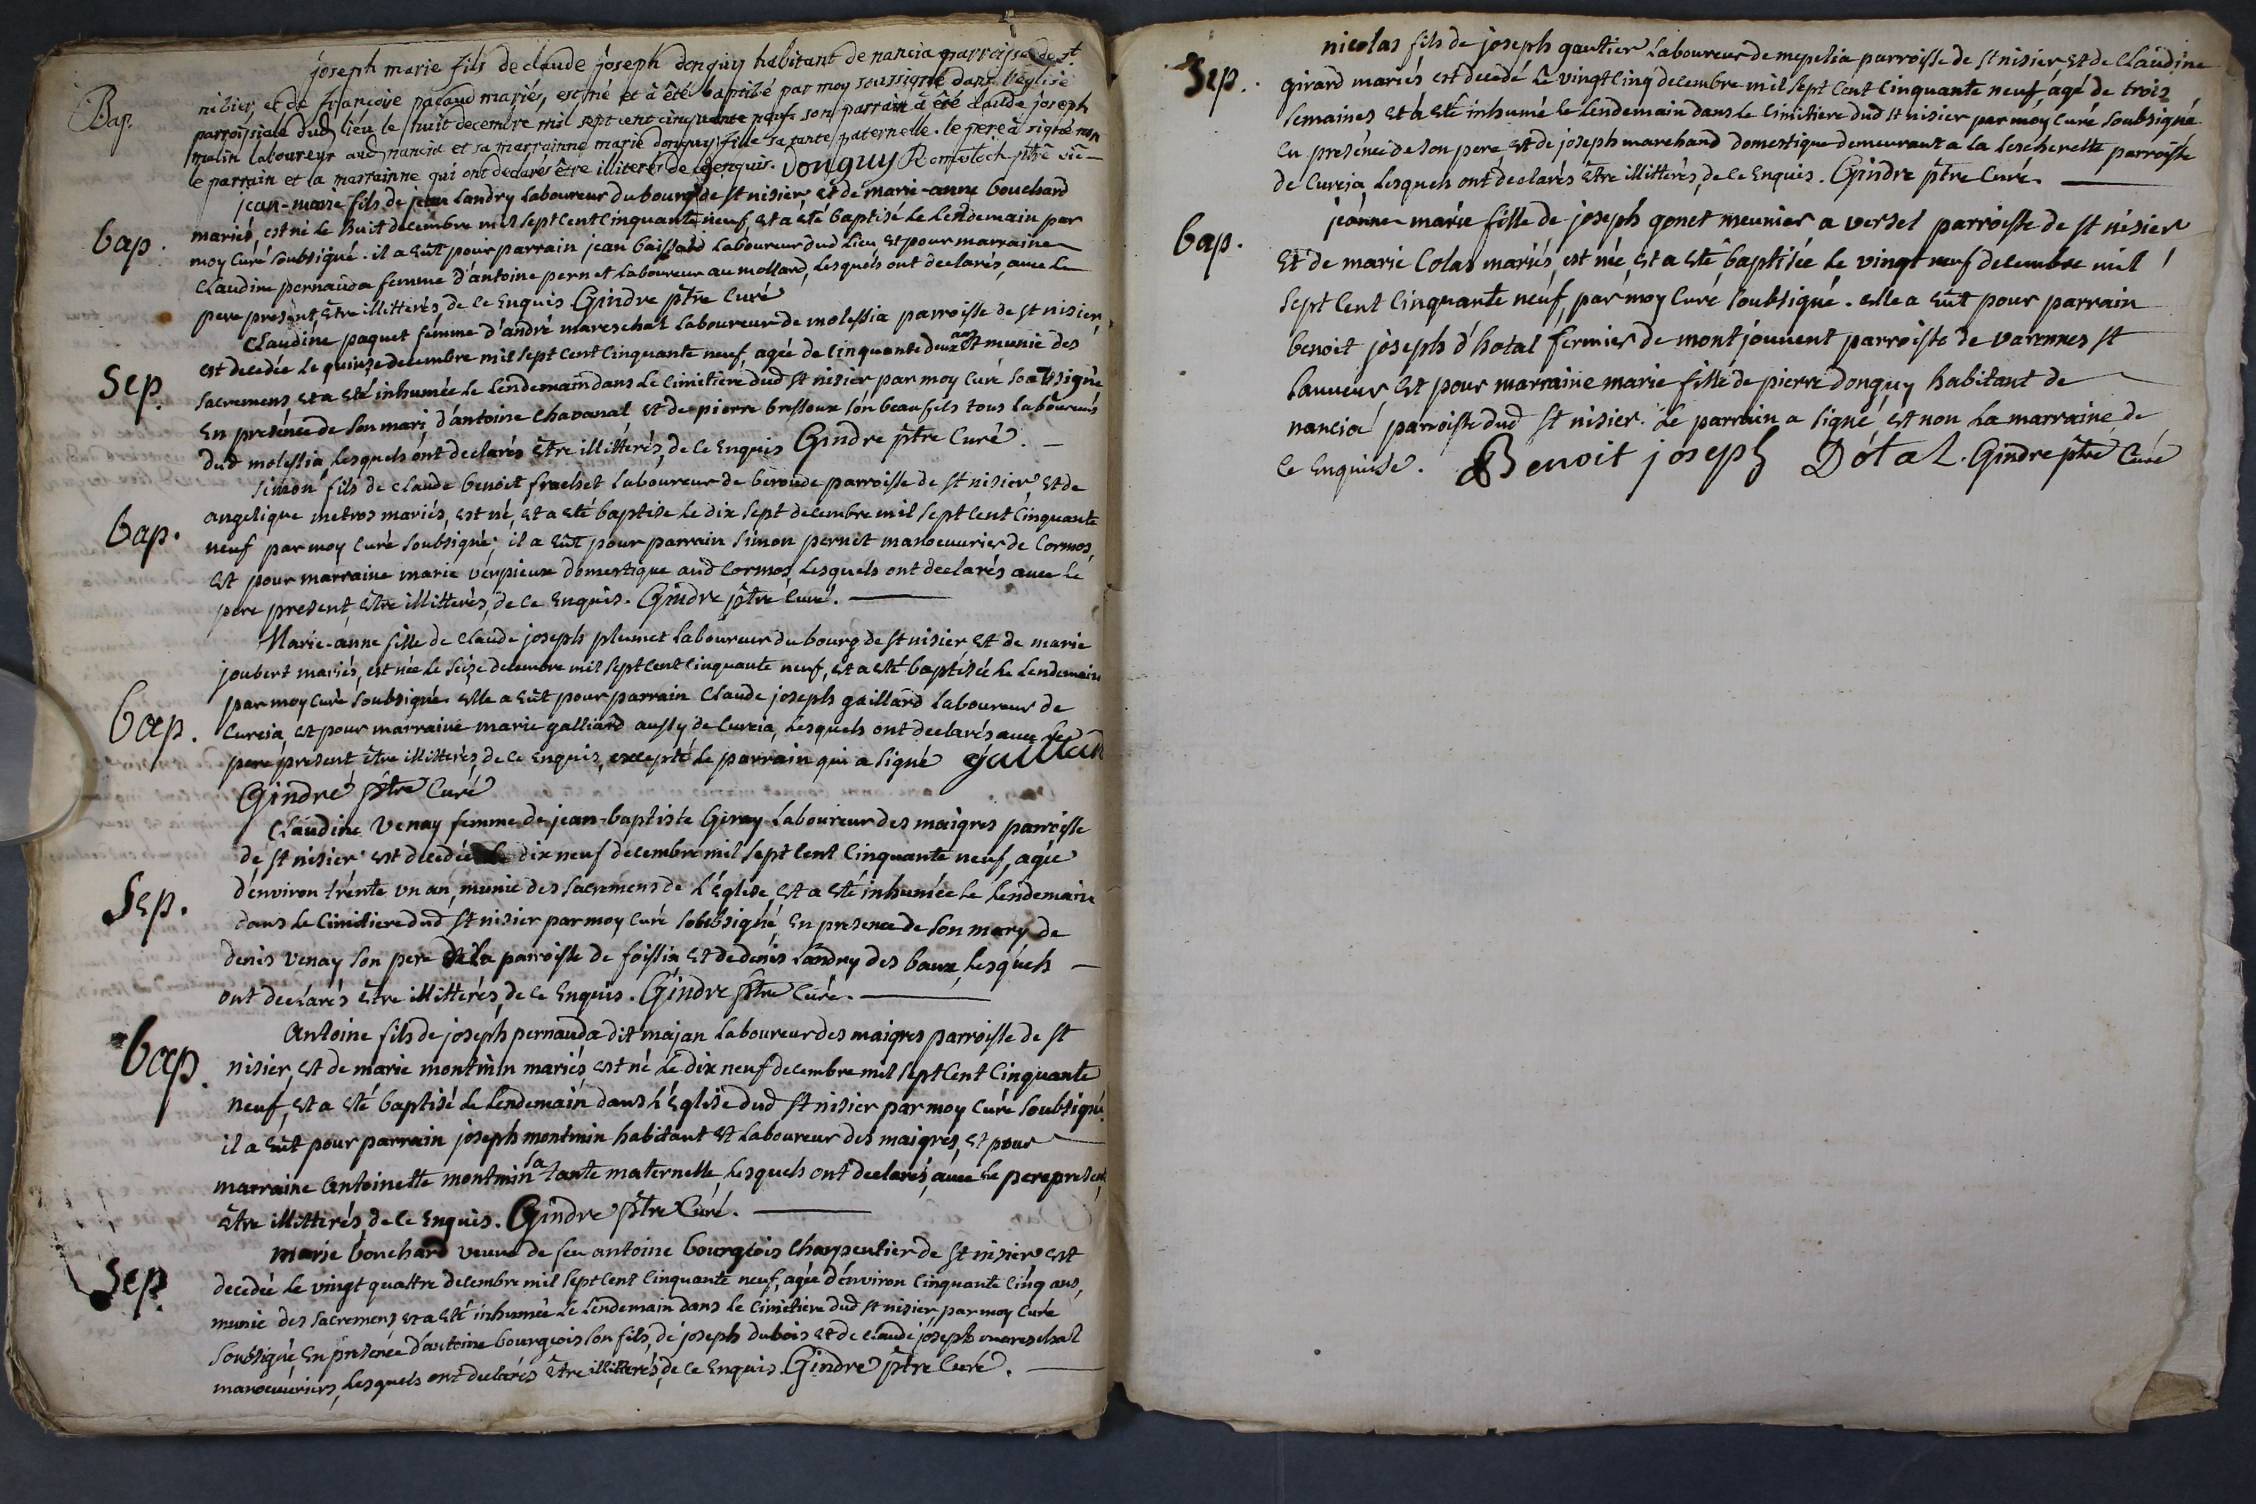 joseph marie fils de claude joseph donguy habitant de nancia parroisse de st
Bap.
nisier, et de françoise pacaud mariés, est né et à été baptisé par moy soussigné dans l'eglise
parroissiale dud lieu le huit decembre mil sept cent cinquante neuf. son parrain à été claude joseph
mulin laboureur aud nancia et sa marrainne marie donguy fille sa tante paternelle. le pere à signé non
le parrain et la marrainne qui ont declarés être illiterés de ce enquis. Donguy ptre vic
jean-marie fils de jean Landry Laboureur du bourg de st nisier, et de marie-anne bouchard
bap.
mariés, est né le huit decembre mil sept cent cinquante neuf, et a eté baptisé le lendemain par
moy curé soubsigné. il a eût pour parrain jean baissard laboureur dud lieu, et pour marraine
claudine pernauda femme d'antoine pernet laboureur au mollard, lesquels ont declarés, avec le
pere present, être illitterés, de ce enquis Gindre ptre curé
claudine paquet femme d'andré mareschal laboureur de molessia parroisse de st nisier,
est decedée le quinze decembre mil sept cent cinquante neuf, agée de cinquante deux ans et munie des
Sep.
sacremens, et a eté inhumée le lendemain dans le cimitiere dud st nisier par moy curé soubsigné
en presence de son mari, d'antoine chavanal et de pierre bressoux son beaufils tous laboureurs
dud molessia, lesquels ont declarés être illitterés, de ce enquis Gindre ptre curé.
simon fils de claude benoit frachet laboureur de beroude parroisse de st nisier, et de
bap.
angelique metros mariés, est né, et a eté baptisé le dix sept decembre mil sept cent cinquante
neuf par moy curé soubsigné; il a eût pour parrain simon pernet manoeuvrier de cormos,
et pour marraine marie verpieux domestique aud cormos, lesquels ont declarés avec le
pere present, être illitterés, de ce enquis. Gindre ptre curé.
Marie-anne fille de claude joseph plumet laboureur du bourg de st nisier, et de marie
joubert mariés, est née le seize decembre mil sept cent cinquante neuf, et a eté baptisée le lendemain
par moy curé soubsigné. elle a eût pour parrain claude joseph gaillard laboureur de
bap.
curcia, et pour marraine marie galliard aussy de curcia, lesquels ont declarés avec le
pere present être illitterés, de ce enquis, excepté le parrain qui a signé gaillar
Gindre ptre curé
claudine venay femme de jean-baptiste Giray laboureur des maigres parroisse
de st nisier est decedée le dix neuf decembre mil sept cent cinquante neuf, agée
Sep.
d'environ trente un an, munie des sacremens de l'église, et a eté inhumée le lendemain
dans le cimitiere dud st nisier par moy curé soubsigné, en presence de son mary de
denis venay son pere de la parroisse de foissia et de denis Landry des baux, lesquels
ont declarés être illitterés, de ce enquis. Gindre ptre curé.
Antoine fils de joseph pernauda dit majan laboureur des maigres parroisse de st
bap.
nisier, et de marie montmin mariés est né le dix neuf decembre mil sept cent cinquante
neuf, et a eté baptisé le lendemain dans l'église dud st nisier par moy curé soubsigné.
il a eût pour parrain joseph montmin habitant et laboureur des maigres, et pour
marraine antoinette montmin sa tante maternelle, lesquels ont declarés, avec le pere present,
être illitterés, de ce enquis. Gindre ptre curé.
marie bouchard veuve de feu antoine bourgeois charpentier de st nisier est
Sep.
decedée le vingt quattre decembre mil sept cent cinquante neuf, agée d'environ cinquante cinq ans,
munie des sacremens, et a eté inhumée le lendemain dans le cimitiere dud st nisier, par moy curé
soubsigné en presence d'antoine bourgeois son fils, de joseph dubois et de claude joseph mareschal
manoeuvriers, lesquels ont declarés être illitterés, de ce enquis. Gindre ptre curé.
nicolas fils de joseph gautier laboureur de mepelia parroisse de st nisier et de claudine
Sep.
girard mariés est decedé le vingt cinq decembre mil sept cent cinquante neuf, agé de trois
semaines et a eté inhumé le lendemain dans le cimitiere dud st nisier par moy curé soubsigné
en presence de son pere et de joseph marchand domestique demeurant a la lescherette parroisse
de curcia, lesquels ont declarés être illitterés, de ce enquis. Gindre ptre curé.
jeanne-marie fille de joseph gonet meunier a versel parroisse de st nisier
bap.
et de marie colas mariés, est née, et a eté baptisée le vingt neuf decembre mil
sept cent cinquante neuf, par moy curé soubsigné. elle a eût pour parrain
benoit joseph d'hotal fermier de montjouvent parroisse de varennes st
sauveur et pour marraine marie fille de pierre donguy habitant de
nancia parroisse dud st nisier. le parrain a signé, et non la marraine de
ce enquise. Benoit joseph Dótal. Gindre ptre curé